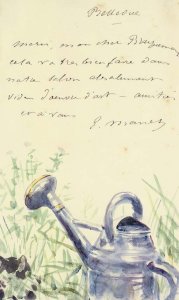 Bellevue
merci, mon cher Bracquemond
cela va très bien faire dans
notre salon absolument
vide d'œuvre d'art – amitiés
et à vous
E. Manet